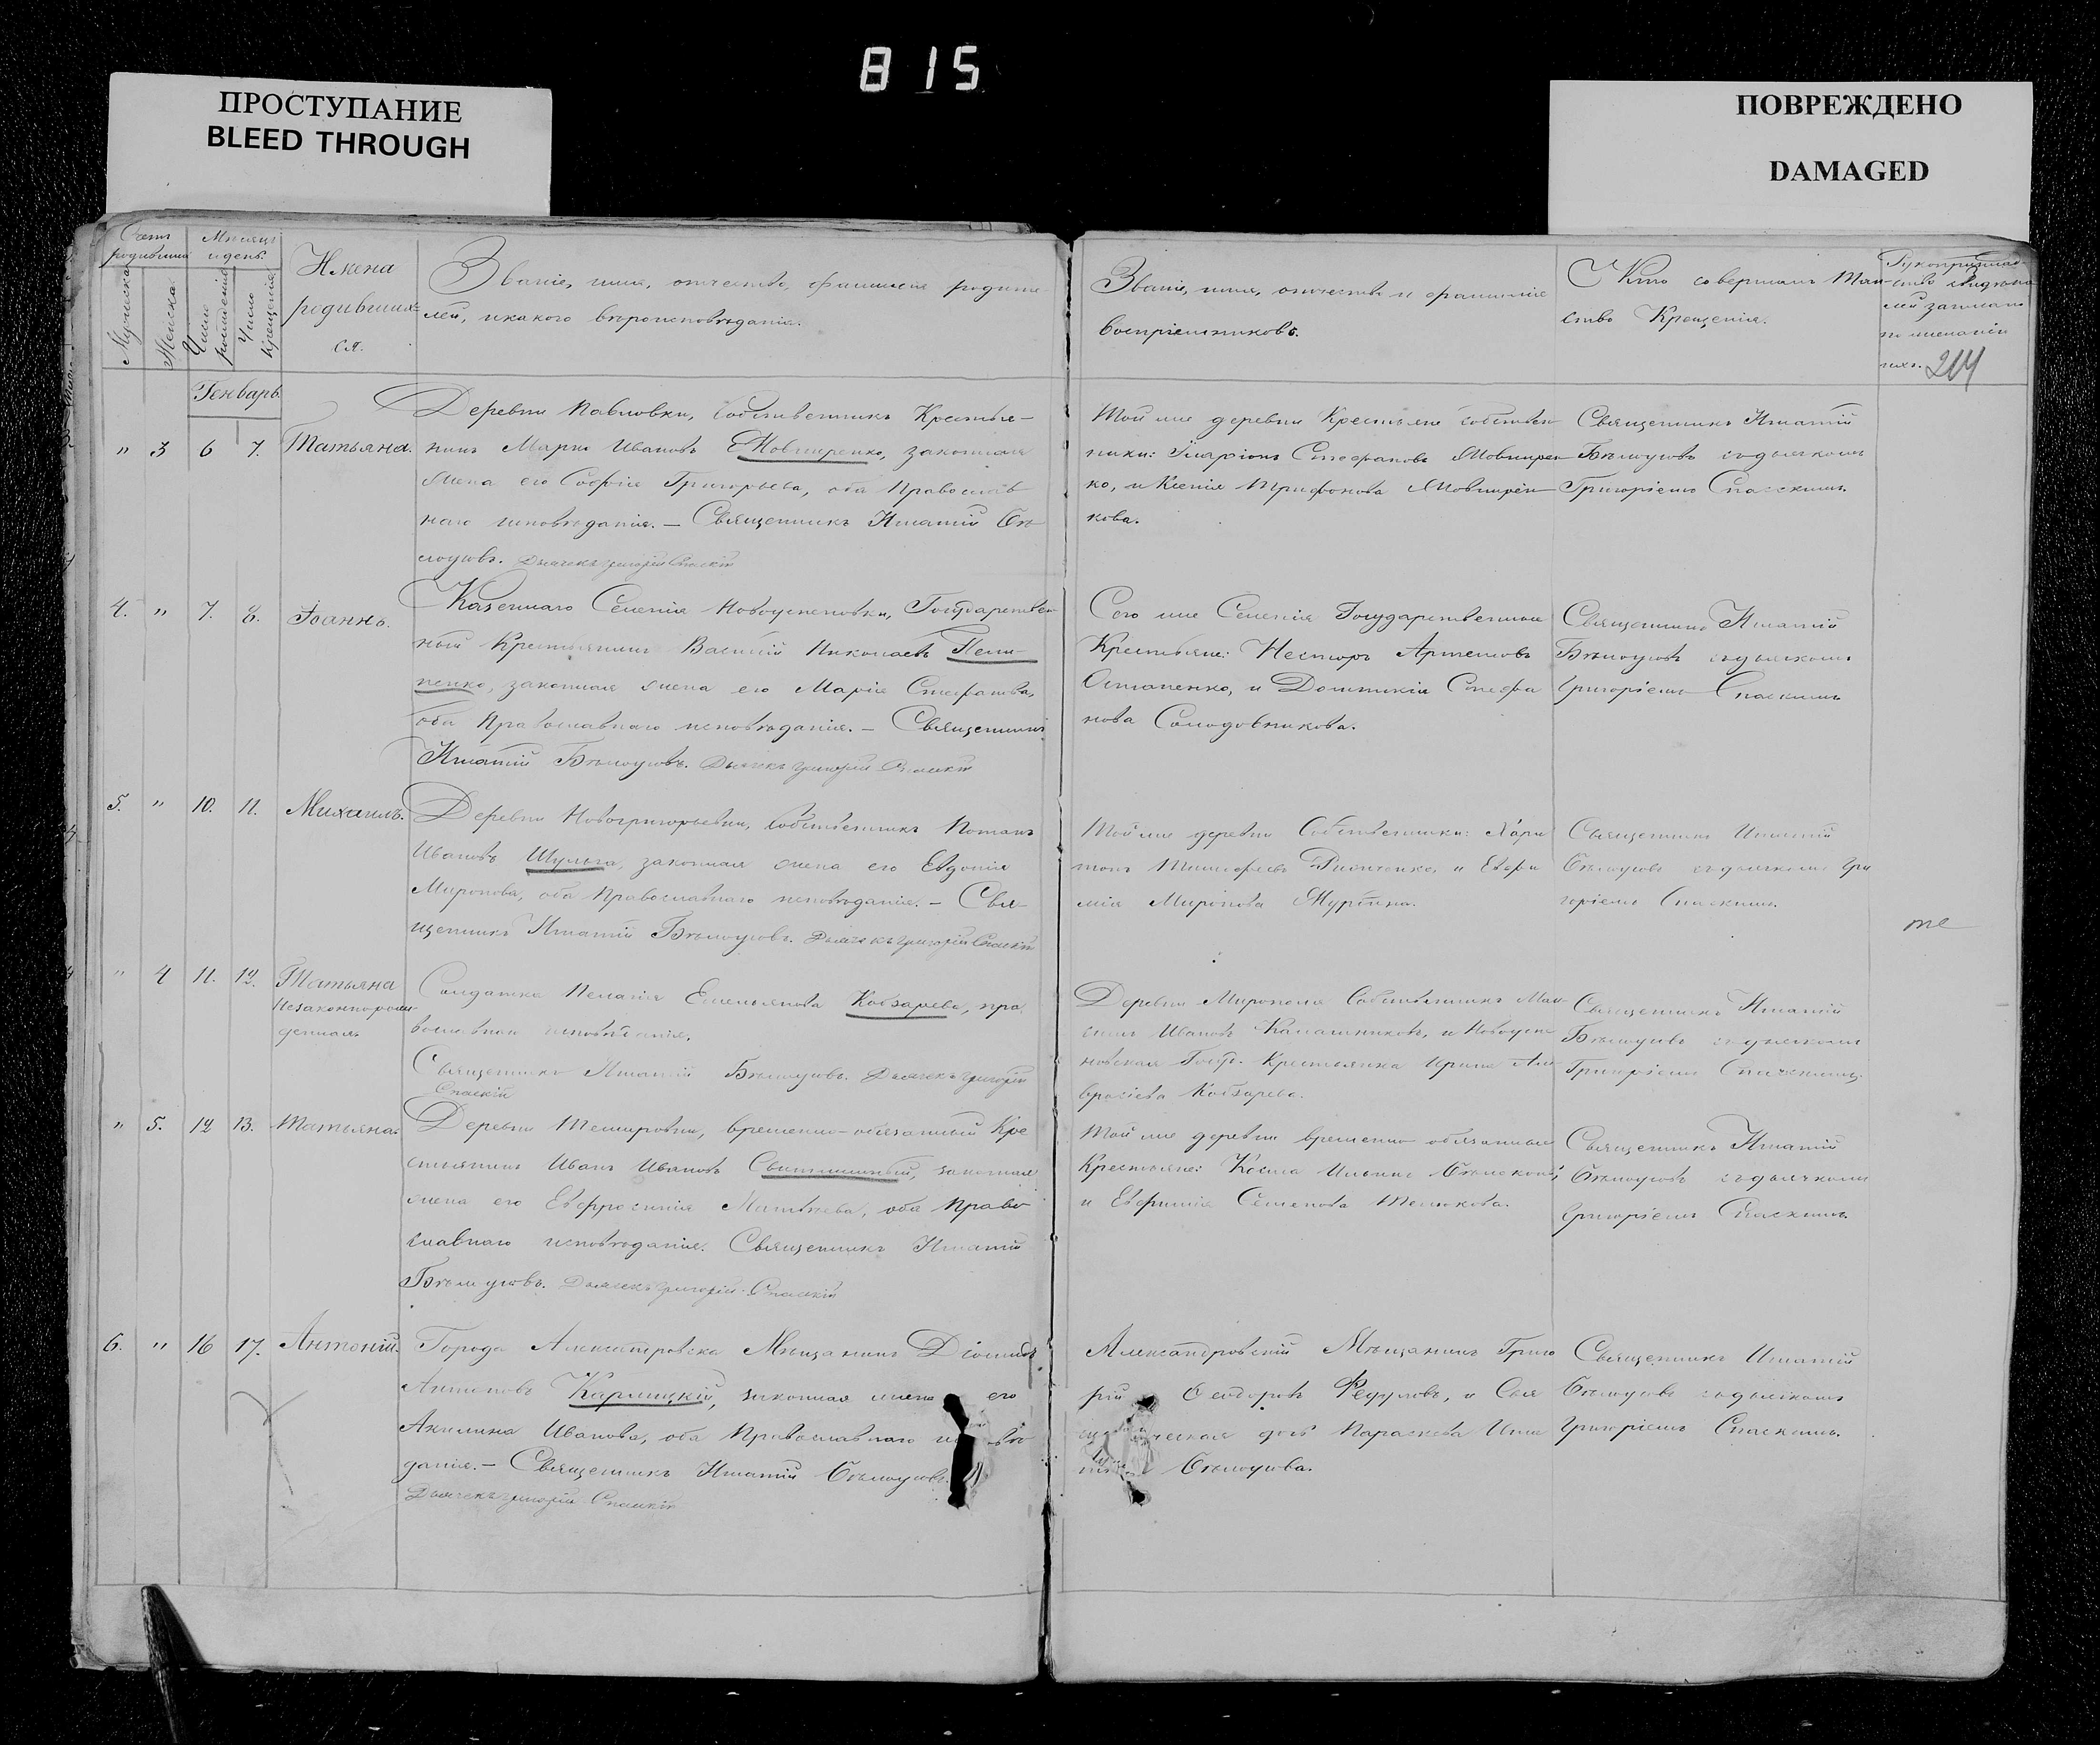 815
ПРОСТУПАНИЕ
BLEED THROUGH
ПОВРЕЖДЕНО
DAMAGED
Счетъ родившихся
Мѣсяцъ и день.
Мужеска
Женска
Число рожденія
Число крещенія
Имена
родивших-
ся.
Званіе, имя, отчество, фамилія родите-
лей, и какого вѣроисповѣданія.
Званіе, имя, отчество и фамилія
Воспріемниковъ.
Кто совершалъ Таин-
ство Крещенія.
по желанію
ихъ.
214
Генварь
" 3 6 7. Татьяна.
Деревни Павловки, собственникъ Крестья-
нинъ Марко Ивановъ, законная
жена его Софія Григорьева, оба Православ
наго исповѣданія. — Священникъ Игнатій Бѣ
лоусовъ. Дьячекъ Григорій Спасскій
Той же деревни Крестьяне собствен
ники: Иларіонъ Стефановъ
ко, и Ксенія Трифонова
кова.
Священникъ Игнатій
Бѣлоусовъ съ дьячкомъ
Григоріемъ Спасскимъ.
4. " 7. 8. Іоаннъ.
Казеннаго Селенія Новоуспеновки, Государствен
ный Крестьянинъ Василій Николаевъ
законная жена его Марія Стефанова,
оба Православнаго исповѣданія. — Священникъ
Игнатій Бѣлоусовъ. Дьячекъ Григорій Спасскій
Сего же Селенія Государственные
Крестьяне: Несторъ Артемовъ
Остапенко, и Домникія Стефа
нова Солодовникова.
Священникъ Игнатій
Бѣлоусовъ съ дьячкомъ
Григоріемъ Спасскимъ
5. " 10. 11. Михаилъ.
Деревни Новогригорьевки, собственникъ Потапъ
Ивановъ Шульга, законная жена его Евдокія
Миронова, оба Православнаго исповѣданія. — Свя-
щенникъ Игнатій Бѣлоусовъ. Дьячекъ Григорій Спасскій
Той же деревни Собственники: Хари
тонъ Тимофеевъ и Евфи
мія Миронова
Священникъ Игнатій
Бѣлоусовъ съ дьячкомъ Гри
горіемъ Спасскимъ.
" 4 11. 12. Татьяна
Незаконнорож-
денная.
Солдатка Пелагія Емельянова Кобзарева, пра
вославнаго исповѣданія.
Священникъ Игнатій Бѣлоусовъ. Дьячекъ Григорій
Спасскій
Деревни Мирополя Собственникъ Мак
симъ Ивановъ Калашниковъ, и Новоуспе
новская Госуд. Крестьянка Ирина Ам
вросіева Кобзарева.
Священникъ Игнатій
Бѣлоусовъ съ дьячкомъ
Григоріемъ Спасскимъ.
" 5. 12 13. Татьяна.
Деревни Темировки, временно-обязанный Кре
стьянинъ Иванъ Ивановъ законная
жена его Евфросинія Матвѣева, оба Право
славнаго исповѣданія. Священникъ Игнатій
Бѣлоусовъ. Дьячекъ Григорій Спасскій
Той же деревни временно-обязанные
Крестьяне: Косма Ильинъ
и Евфимія Семенова
Священникъ Игнатій
Бѣлоусовъ съ дьячкомъ
Григоріемъ Спасскимъ.
6. " 16 17. Антоній.
Города Александровска Мѣщанинъ Діомидъ
Антиповъ Карлицкій, законная жена его
Акилина Иванова, оба Православнаго
данія. — Священникъ Игнатій Бѣлоусовъ.
Дьячекъ Григорій Спасскій
Александровскій Мѣщанинъ Григо
рій Ѳеодоровъ Федуловъ, и Свя
дочь Параскева Игна
Бѣлоусова.
Священникъ Игнатій
Бѣлоусовъ съ дьячкомъ
Григоріемъ Спасскимъ.